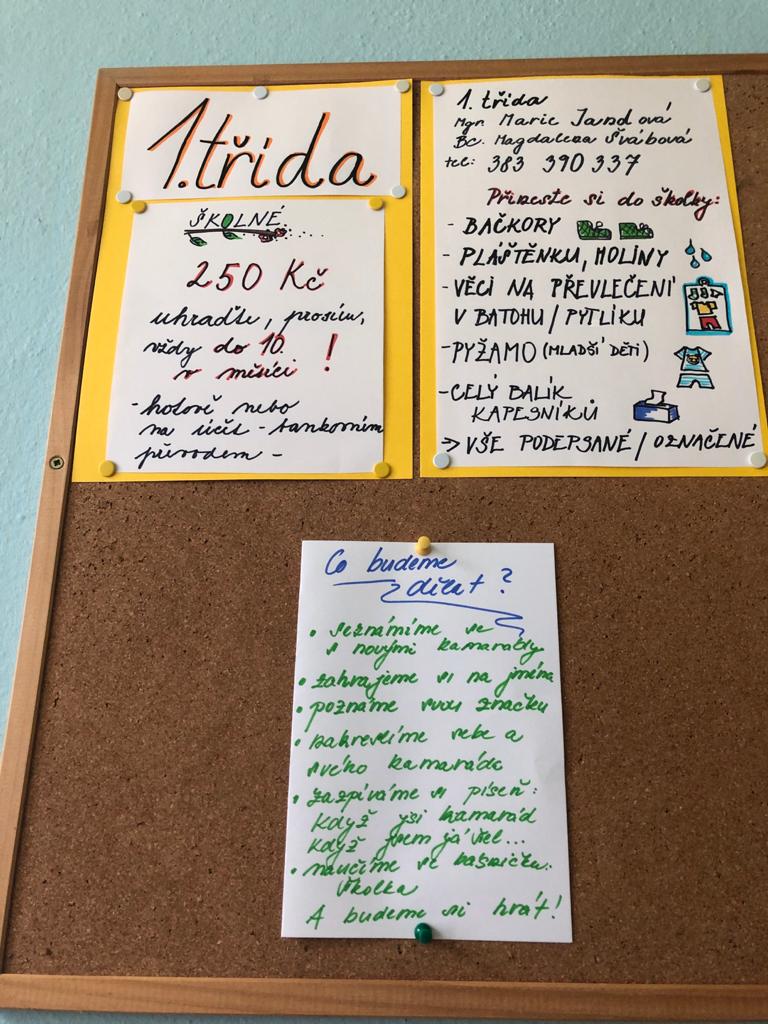 1. třída
ŠKOLNÉ
250 Kč
uhraďte, prosím,
vždy do 10. !
v měsíci
- hotově nebo
na účet - bankovním
převodem -
1. třída
Mgr. Marie Jandová
Bc. Magdalena Švábová
tel: 383 390 337
Přineste si do školky:
- BAČKORY
- PLÁŠTĚNKU, HOLÍNY
- VĚCI NA PŘEVLEČENÍ
V BATOHU / PYTLÍKU
- PYŽAMO (MLADŠÍ DĚTI)
- CELÝ BALÍK
KAPESNÍKŮ
→ VŠE PODEPSANÉ / OZNAČENÉ
Co budeme
dělat?
• seznámíme se
s novými kamarády
• zahrajeme si na jména
• poznáme svou značku
• nakreslíme sebe a
svého kamaráda
• zazpíváme si píseň:
Když jsi kamarád
Když jsem já šel...
• naučíme se básničku:
Školka
A budeme si hrát!